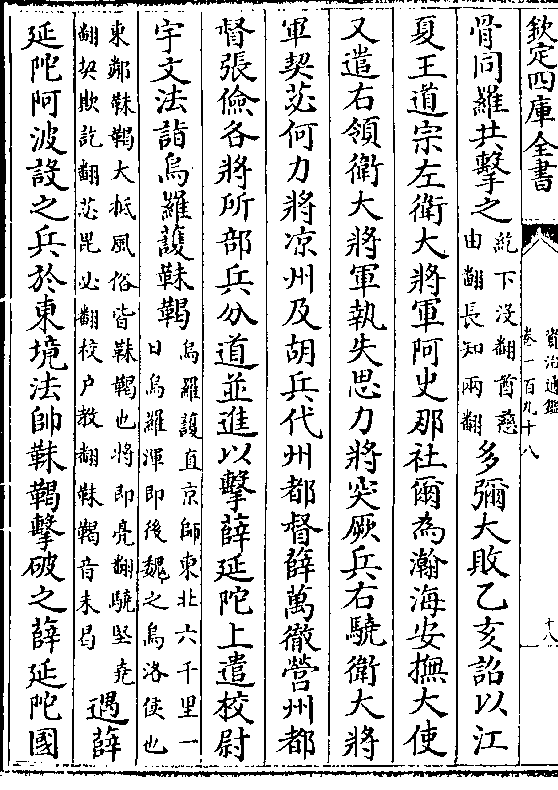 欽定四庫全書
資治通鑑
卷一百九十八
十八
骨同羅共擊之
紇下没翻酋慈
由翻長知兩翻
多彌大敗乙亥詔以江
夏王道宗左衛大將軍阿史那社爾為瀚海安撫大使
又遣右領衛大將軍執失思力將突厥兵右驍衛大將
軍契苾何力將凉州及胡兵代州都督薛萬徹營州都
督張儉各將所部兵分道並進以擊薛延陀上遣校尉
宇文法詣烏羅護靺鞨
烏羅護直京師東北六千里一
曰烏羅渾即後魏之烏洛侯也
東鄰靺鞨大抵風俗皆靺鞨也將即亮翻驍堅堯
翻契欺訖翻苾毘必翻校户教翻靺鞨音末曷
遇薛
延陀阿波設之兵於東境法帥靺鞨擊破之薛延陀國